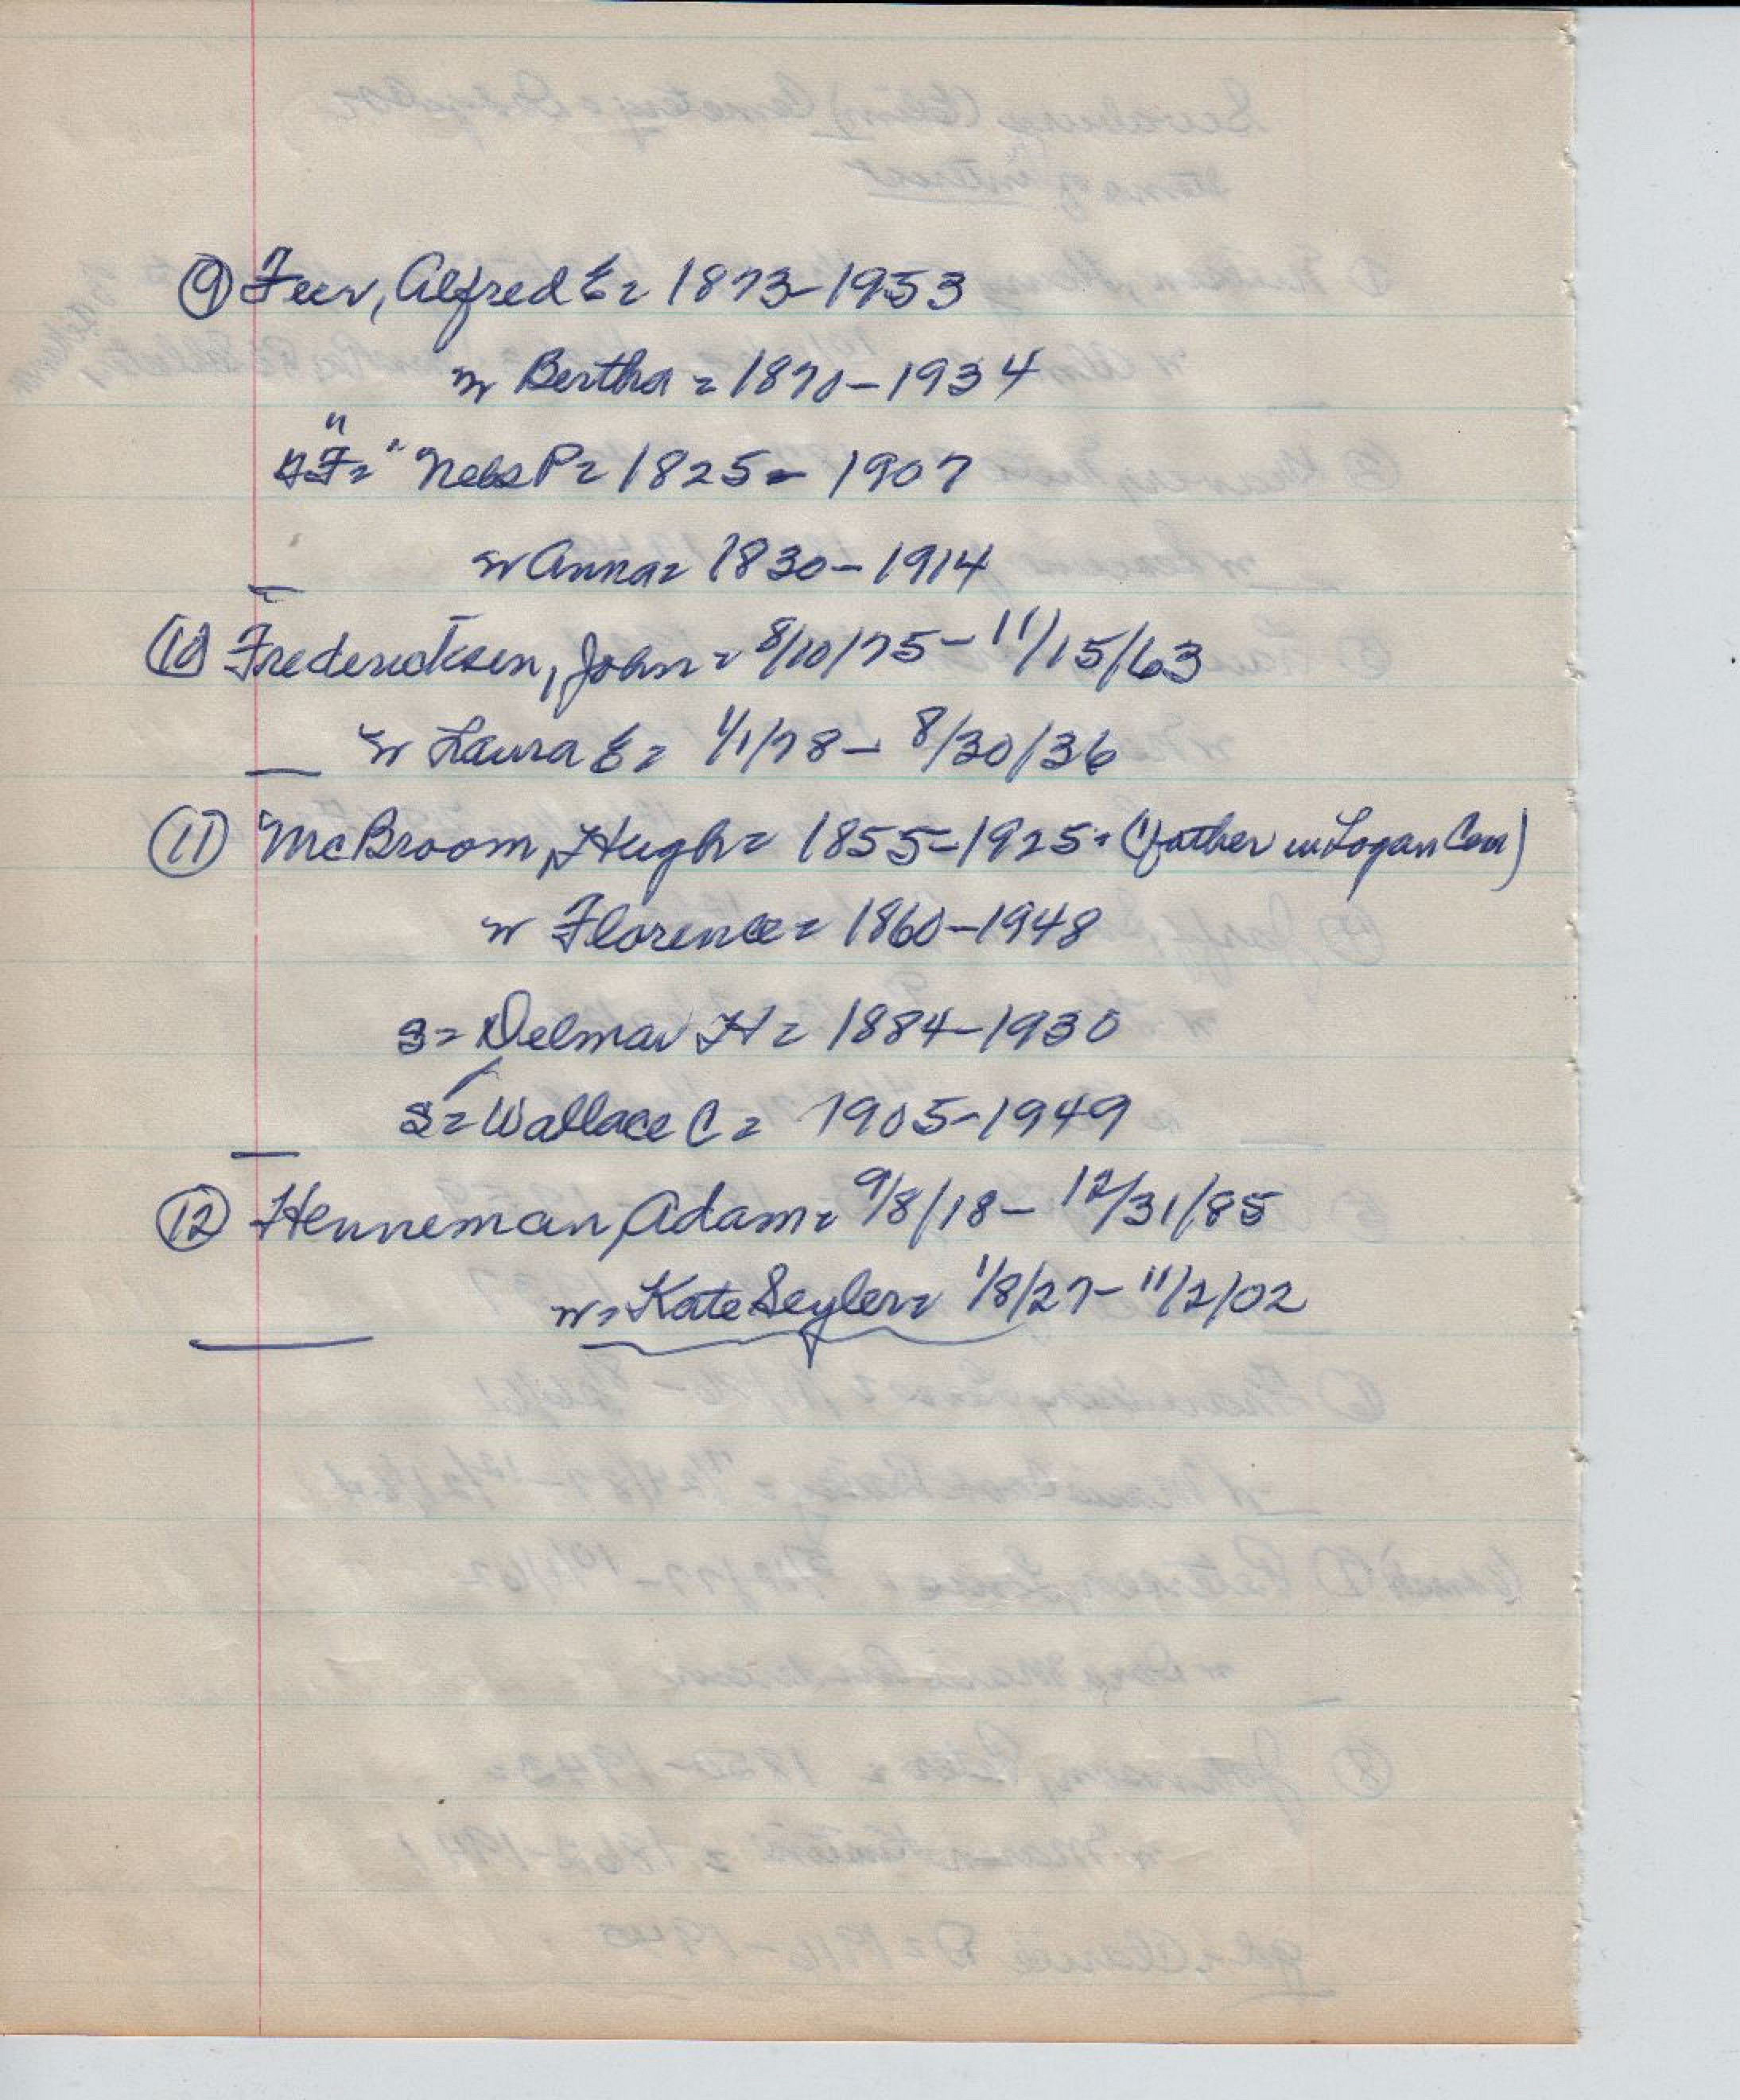 ⑨ Feer, Alfred E = 1873-1953
w Bertha = 1870-1934
"
F = " Nels P = 1825 - 1907
w Anna = 1830-1914
⑩ Fredericksen, John = 8/10/75 - 11/15/63
w Laura E = 1/1/78 - 8/30/36
⑪ McBroom, Hugh = 1855-1925 = (father in Logan Cem)
w Florence = 1860-1948
S = Delmar H = 1884-1930
S = Wallace C = 1905-1949
⑫ Henneman, Adam = 9/8/18 - 12/31/85
w = Kate Seyler = 1/8/27 - 11/2/02